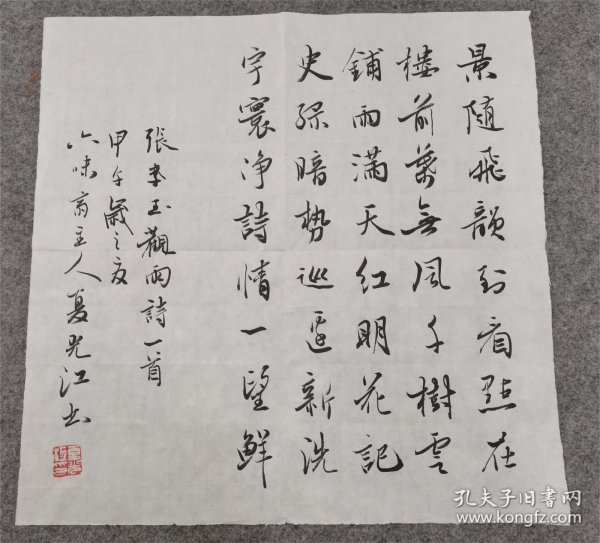 景随飛韻到眉點在
樓前葉無風千樹雲
鋪雨滿天紅明花記
史綠暗勢巡邊新洗
宇寰净詩情一望鮮
張本玉觀雨詩一首
甲午歲之夏
六味齋主人夏光江书
孔夫子旧书网
www.kongfz.com